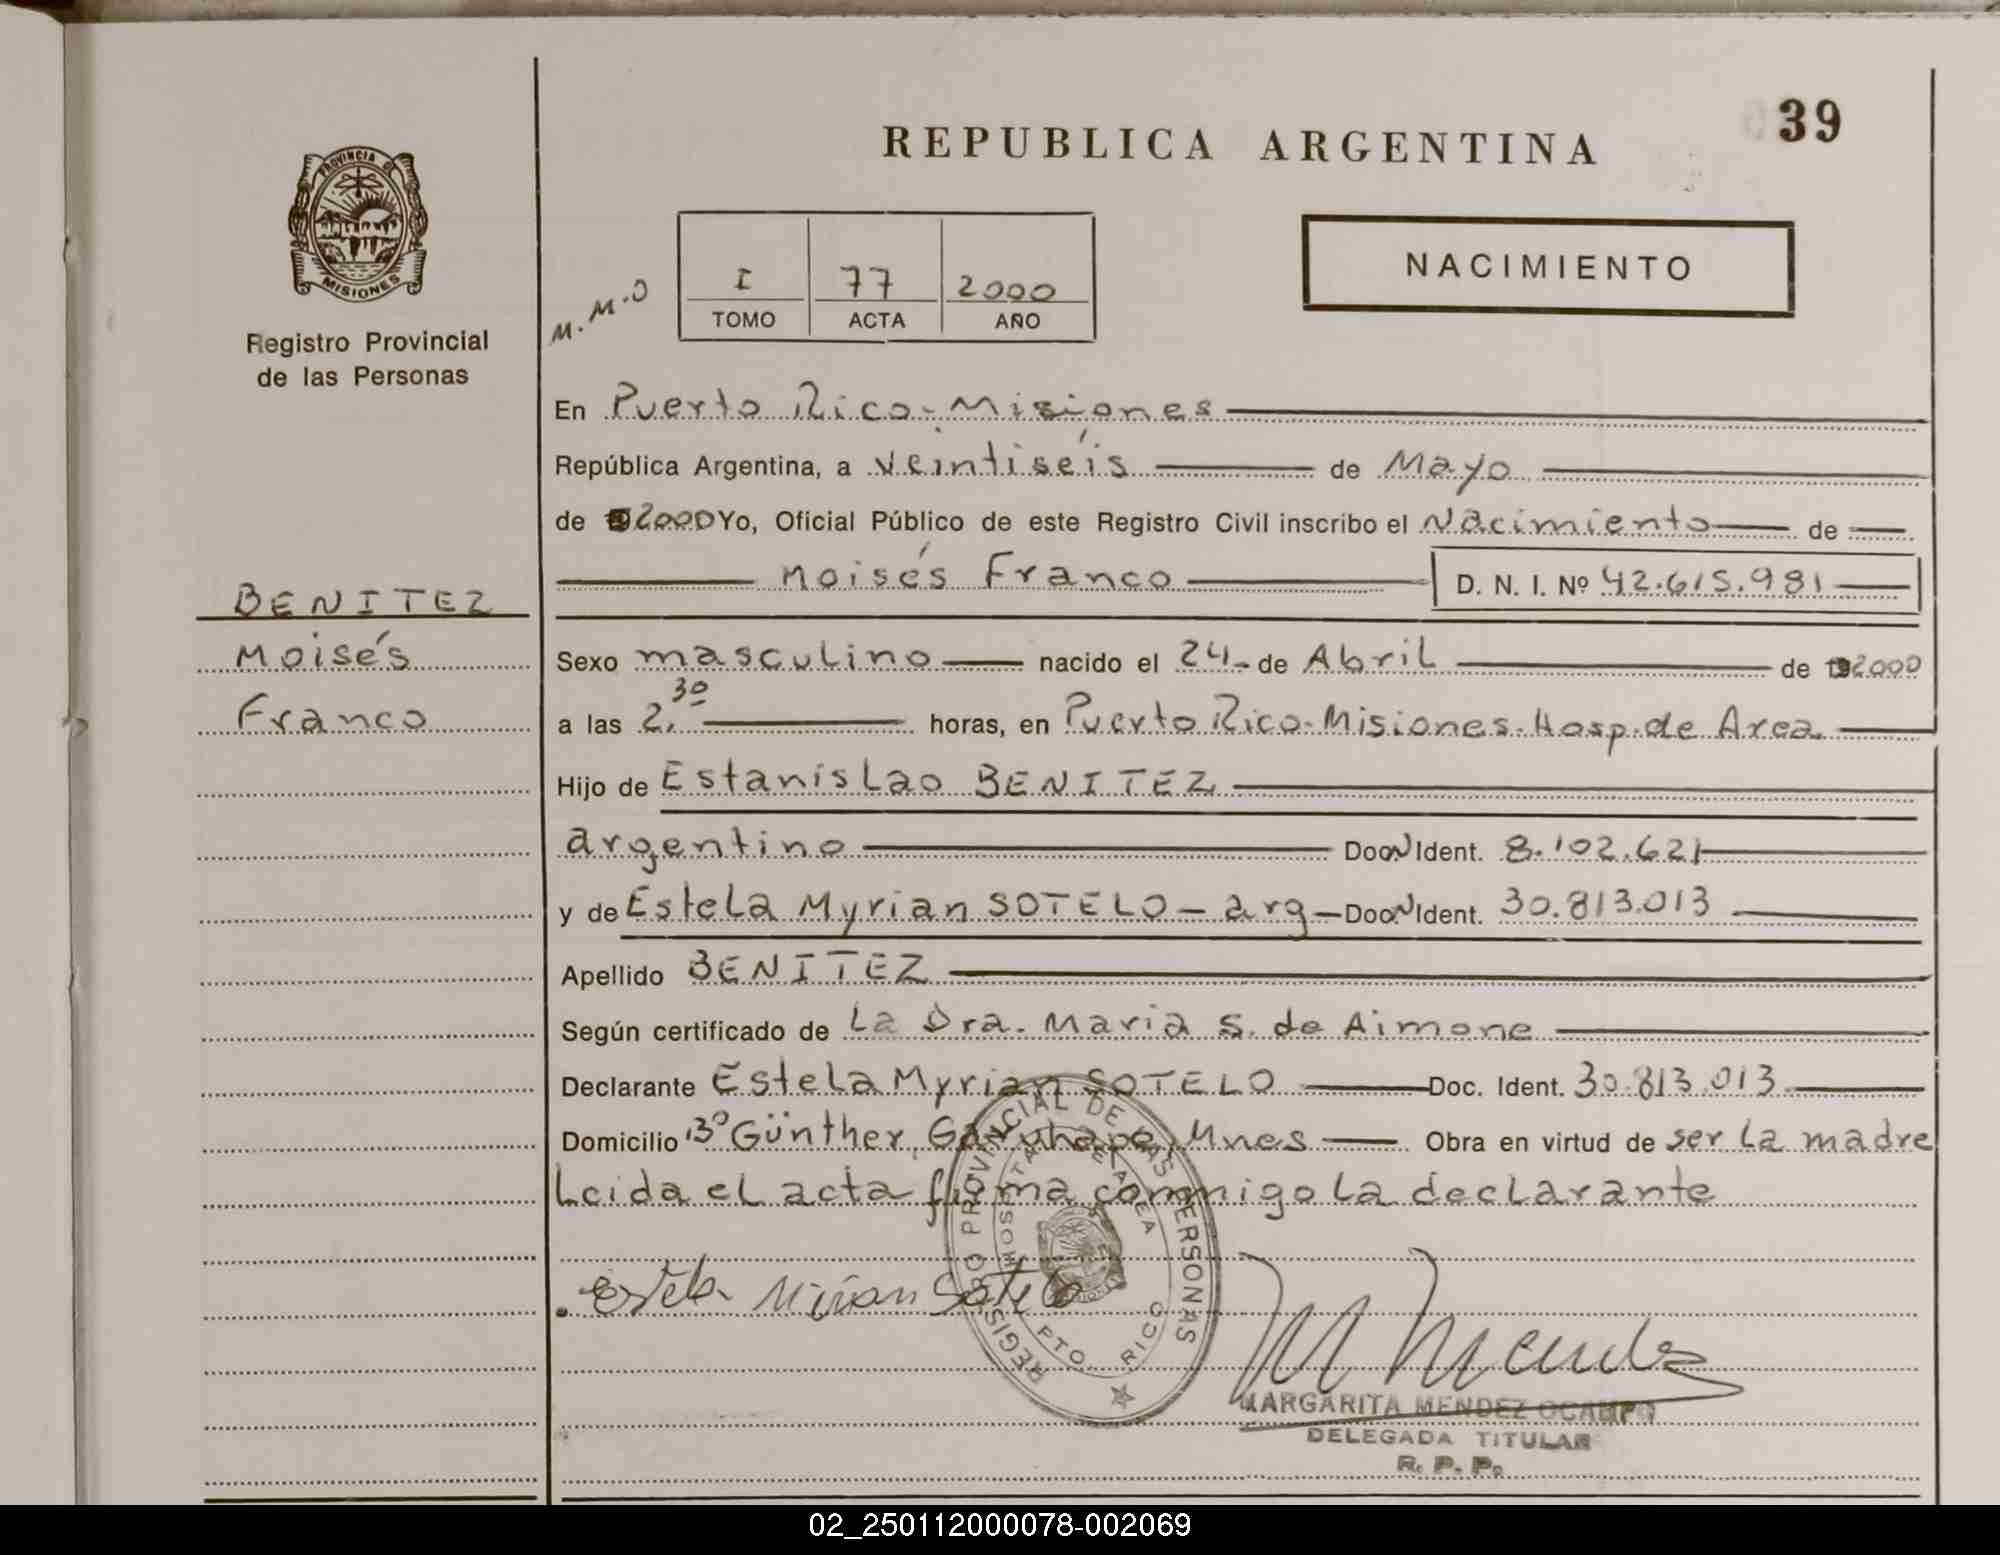 039
REPUBLICA ARGENTINA
PROVINCIA DE
MISIONES
Registro Provincial
de las Personas
M.M.O
I 77 2000
TOMO ACTA AÑO
NACIMIENTO
En Puerto Rico-Misiones
República Argentina, a veintiséis de Mayo
de 2000 Yo, Oficial Público de este Registro Civil inscribo el Nacimiento de
Moisés Franco D. N. I. Nº 42.615.981
BENITEZ
Moisés
Franco
Sexo masculino nacido el 24- de Abril de 2000
a las 2,30 horas, en Puerto Rico-Misiones-Hosp.de Area
Hijo de Estanislao BENITEZ
argentino Doc.N Ident. 8.102.621
y de Estela Myrian SOTELO - arg - Doc.N Ident. 30.813.013
Apellido BENITEZ
Según certificado de La Dra. Maria S. de Aimone
Declarante Estela Myrian SOTELO Doc. Ident. 30.813.013
Domicilio Bº Günther, Garuhape, Mnes Obra en virtud de ser La madre
Leida el acta firma conmigo La declarante
Estela Mirian Sotelo
REGISTRO PROVINCIAL DE LAS PERSONAS
HOSPITAL DE AREA
PTO. RICO
M Mendez
MARGARITA MENDEZ OCAMPO
DELEGADA TITULAR
R. P. P.
02_250112000078-002069